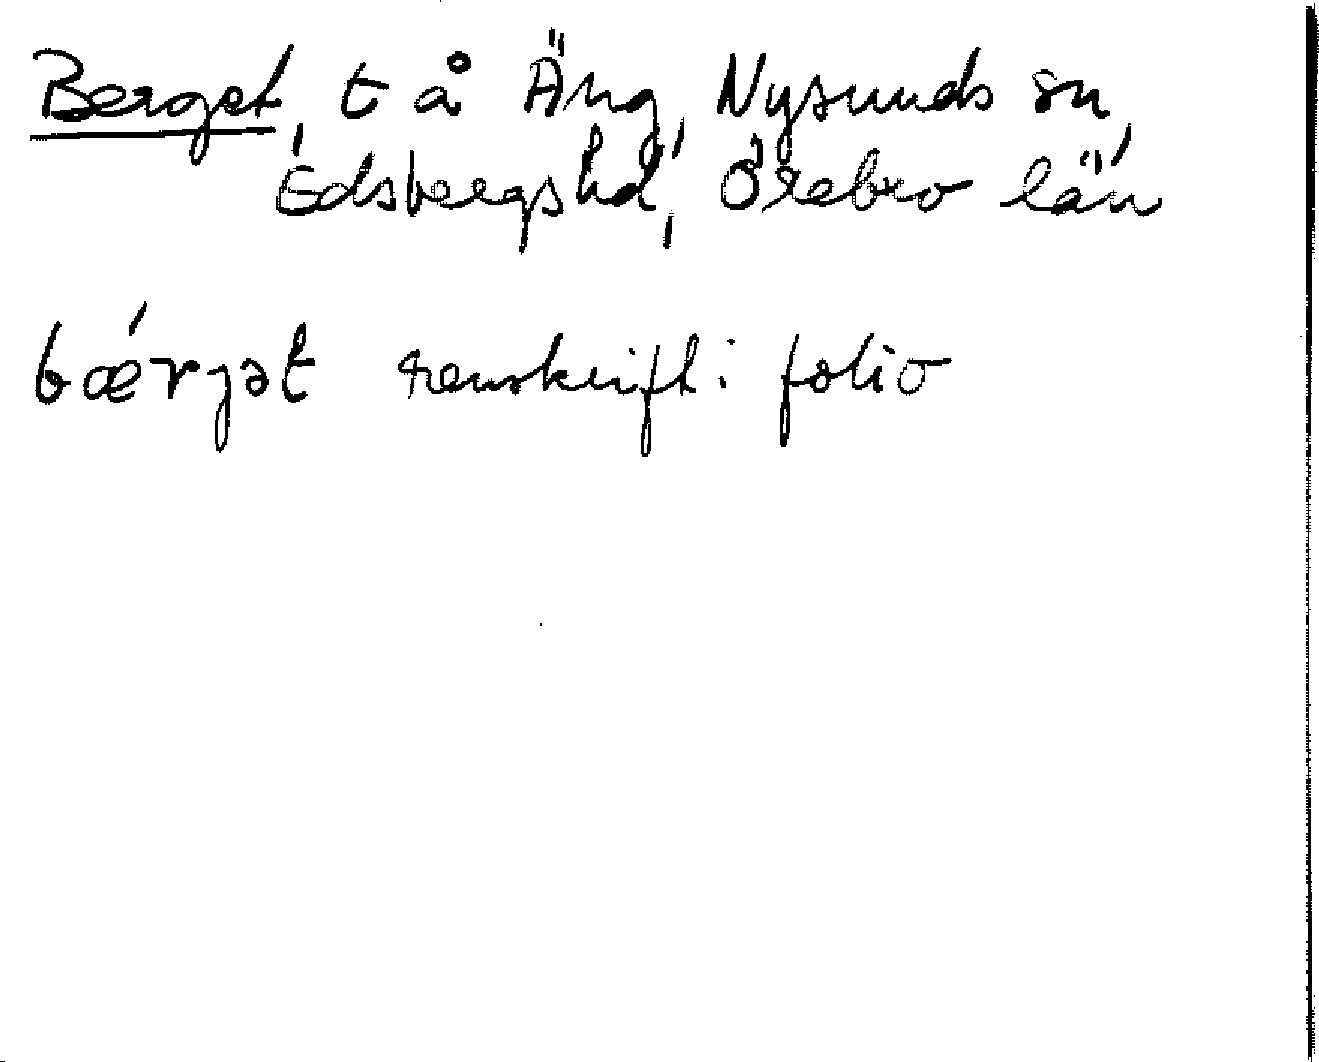 Berget, t å Äng, Nysunds sn,
Edsbergs hd, Örebro län
bǽrjət renskrift: folio